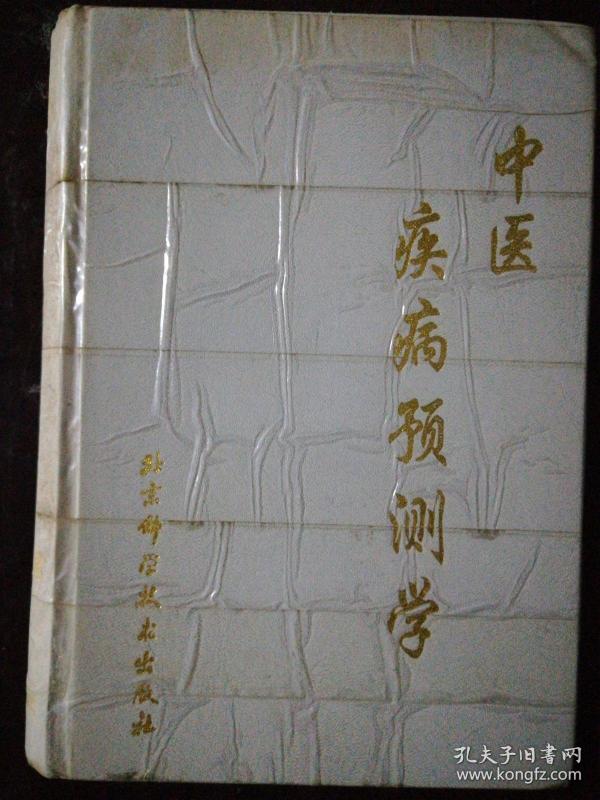 中医
疾病预测学
北京科学技术出版社
孔夫子旧书网
www.kongfz.com